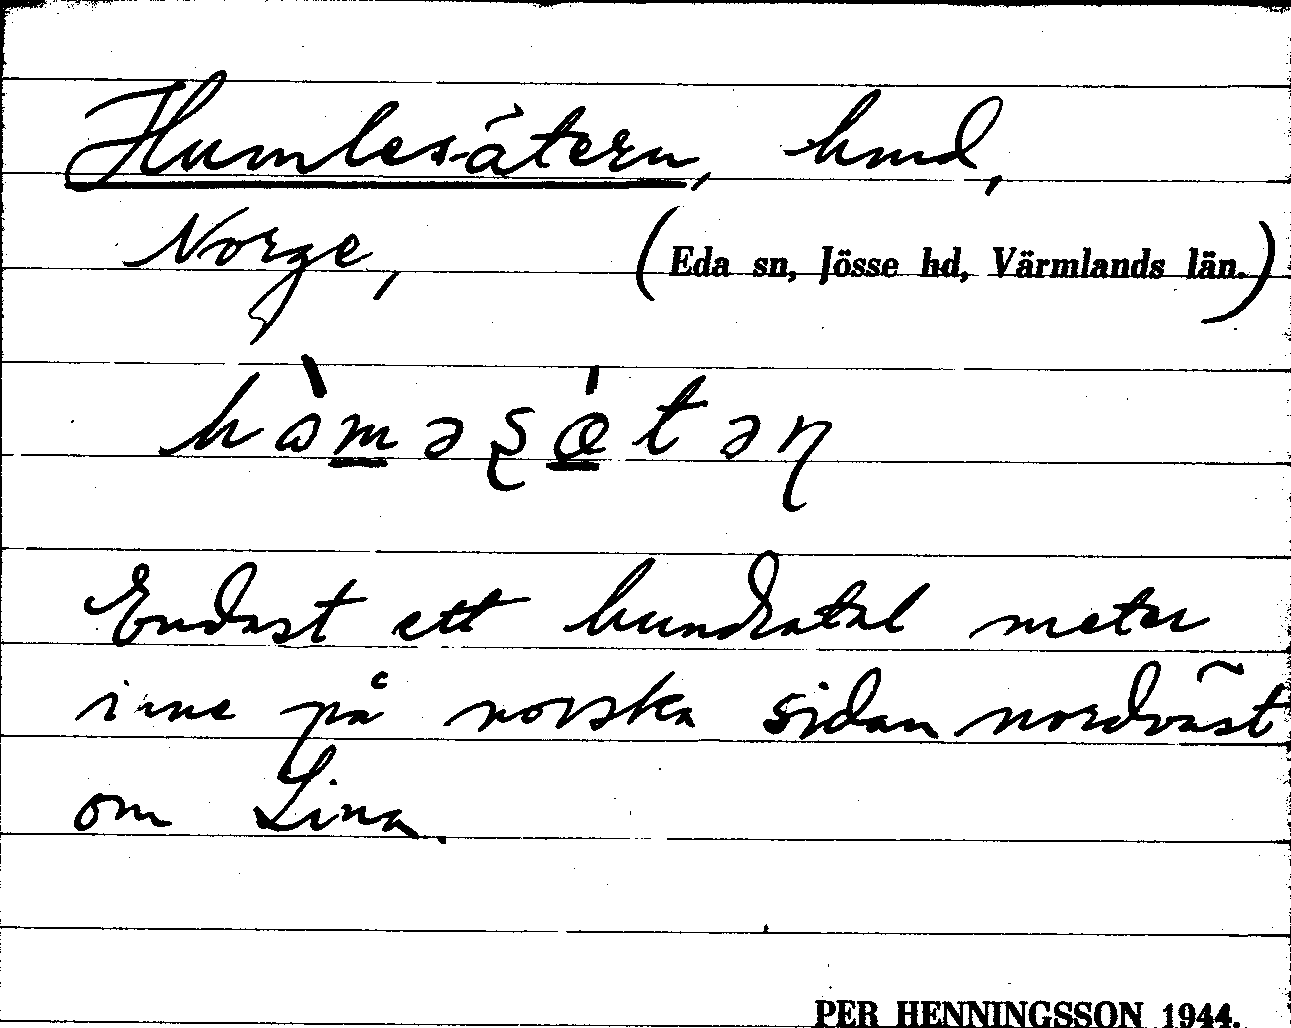 Humlesätern, hmd,
Norge, (Eda sn, Jösse hd, Värmlands län.)
Endast ett hundratal meter
inne på norska sidan nordväst
om Lina.
PER HENNINGSSON 1944.